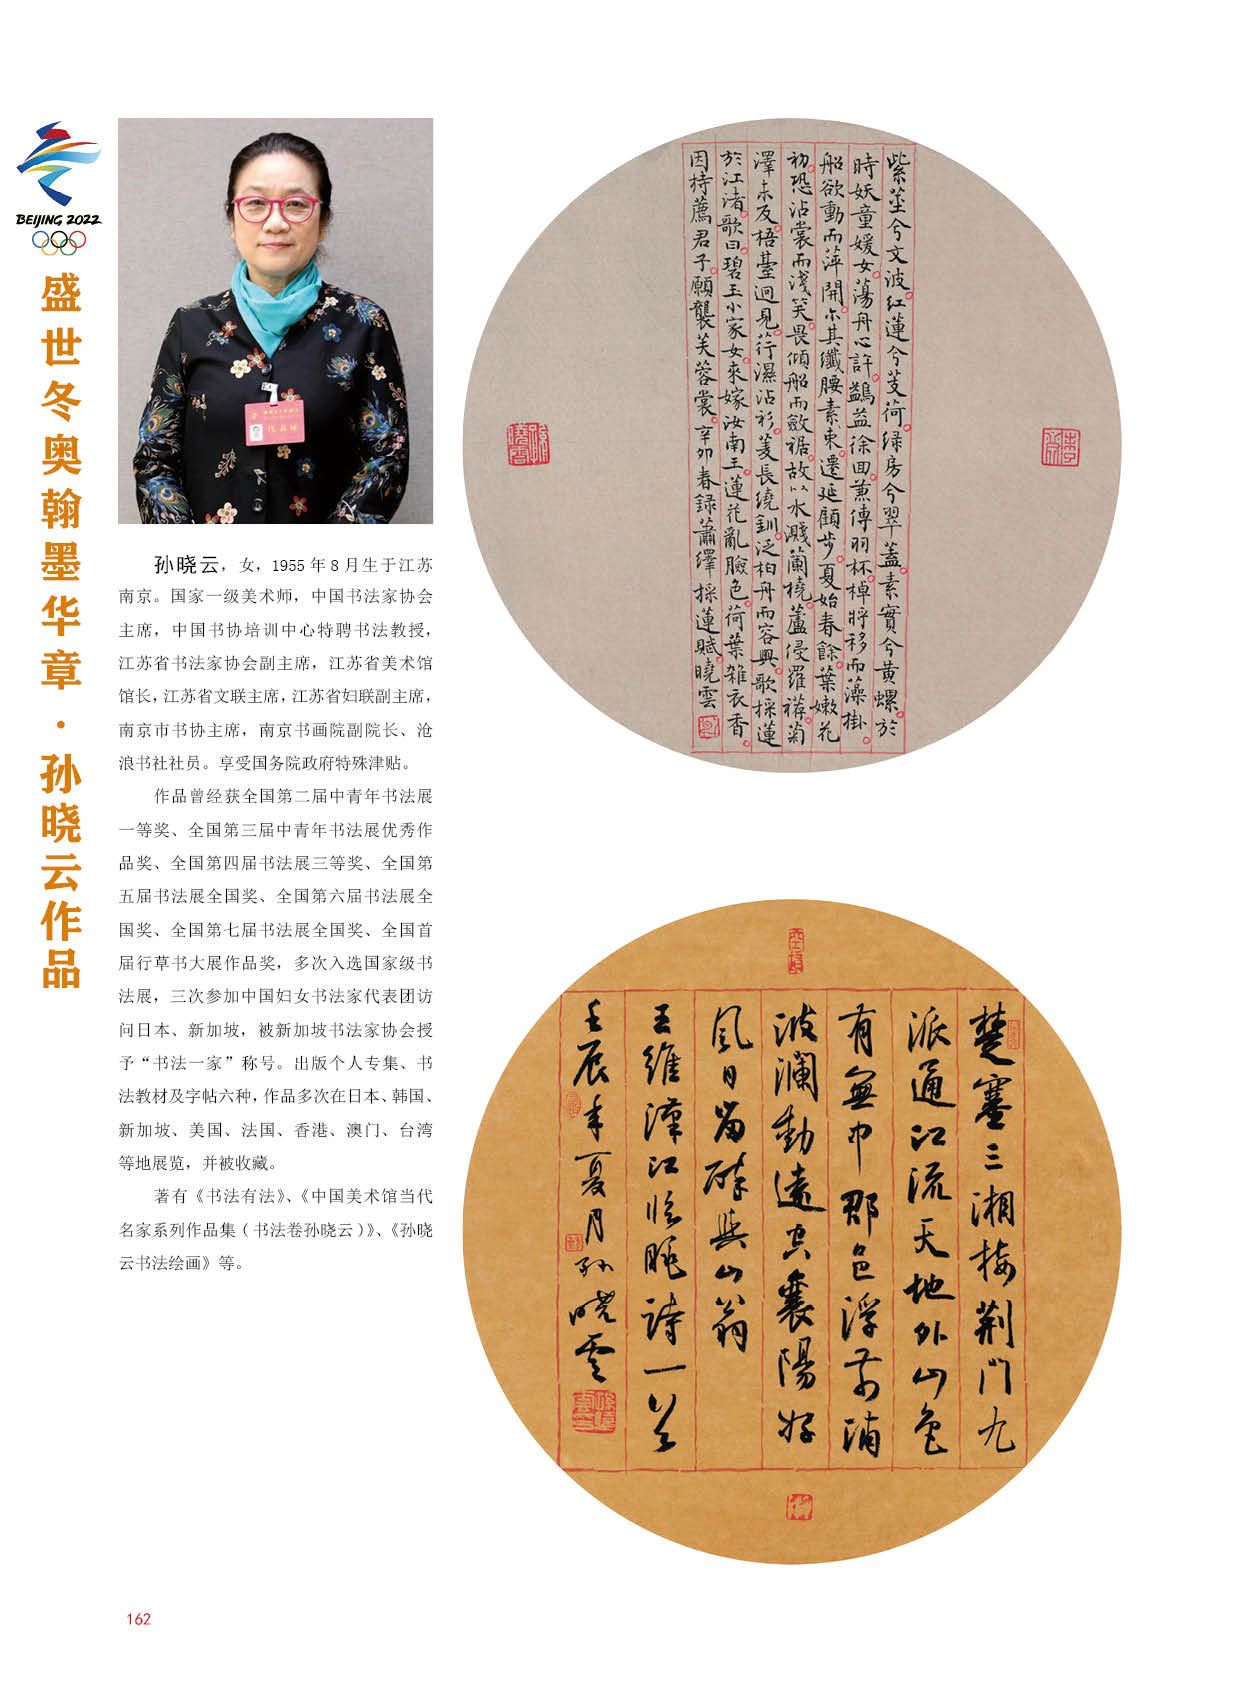 BEIJING 2022
盛世冬奥翰墨华章·孙晓云作品
孙晓云，女，1955 年 8 月生于江苏
南京。国家一级美术师，中国书法家协会
主席，中国书协培训中心特聘书法教授，
江苏省书法家协会副主席，江苏省美术馆
馆长，江苏省文联主席，江苏省妇联副主席，
南京市书协主席，南京书画院副院长、沧
浪书社社员。享受国务院政府特殊津贴。
作品曾经获全国第二届中青年书法展
一等奖、全国第三届中青年书法展优秀作
品奖、全国第四届书法展三等奖、全国第
五届书法展全国奖、全国第六届书法展全
国奖、全国第七届书法展全国奖、全国首
届行草书大展作品奖，多次入选国家级书
法展，三次参加中国妇女书法家代表团访
问日本、新加坡，被新加坡书法家协会授
予“书法一家”称号。出版个人专集、书
法教材及字帖六种，作品多次在日本、韩国、
新加坡、美国、法国、香港、澳门、台湾
等地展览，并被收藏。
著有《书法有法》、《中国美术馆当代
名家系列作品集（书法卷孙晓云）》、《孙晓
云书法绘画》等。
紫莖兮文波紅蓮兮芰荷綠房兮翠蓋素實兮黃螺於
時妖童媛女蕩舟心許鷁益徐回兼傳羽杯棹將移而藻掛
船欲動而萍開尔其纖腰素束遷延顧步夏始春餘葉嫩花
初恐沾裳而淺笑畏傾船而斂裾故以水濺蘭橈蘆侵羅褥菊
澤未反梧臺迥見荇濕沾衫菱長繞釧泛柏舟而容與歌採蓮
於江渚歌曰碧玉小家女來嫁汝南王蓮花亂臉色荷葉雜衣香
因持薦君子願襲芙蓉裳辛卯春録蕭繹採蓮賦曉雲
楚塞三湘接荆門九
派通江流天地外山色
有無中郡邑浮前浦
波瀾動遠空襄陽好
風日留醉與山翁
王維漢江臨眺詩一首
壬辰年夏月孫曉雲
162